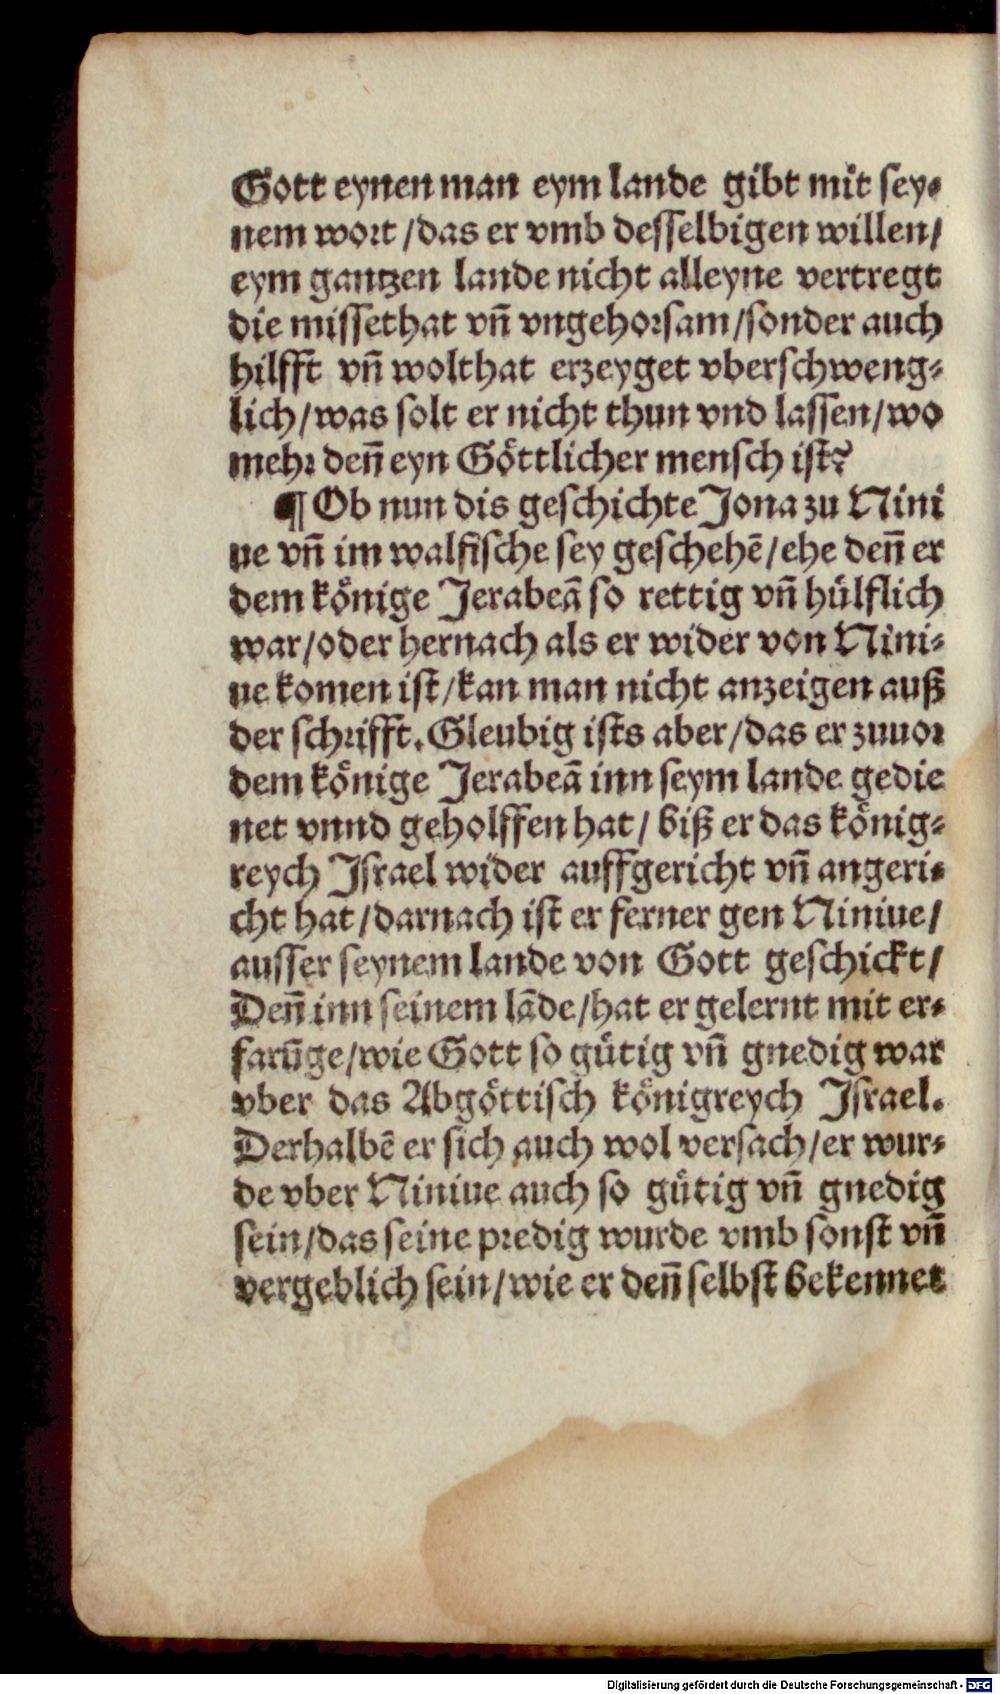 Gott eynen man eym lande gibt mit sey-
nem wort /das er vmb desselbigen willen/
eym gantzen lande nicht alleyne vertregt
die missethat vñ vngehorsam /sonder auch
hilfft vñ wolthat erzeyget vberschweng-
lich/was solt er nicht thun vnd lassen/wo
mehr deñ eyn Göttlicher mensch ist?
¶ Ob nun dis geschichte Jona zu Nini
ue vñ im walfische sey geschehē/ehe deñ er
dem könige Jerabeā so rettig vñ hülflich
war/oder hernach als er wider von Nini-
ue komen ist/kan man nicht anzeigen auß
der schrifft. Gleubig ists aber/das er zuuor
dem könige Jerabeā inn seym lande gedie
net vnnd geholffen hat/ biß er das König-
reych Israel wider auffgericht vñ angeri-
cht hat/darnach ist er ferner gen Niniue/
ausser seynem lande von Gott geschickt/
Deñ inn seinem lāde/hat er gelernt mit er-
farūge/wie Gott so gütig vñ gnedig war
vber das Abgöttisch königreych Israel.
Derhalbē er sich auch wol versach/er wur-
de vber Niniue auch so gütig vñ gnedig
sein/das seine predig wurde vmb sonst vñ
vergeblich sein/wie er deñ selbst bekennet
Digitalisierung gefördert durch die Deutsche Forschungsgemeinschaft - DFG